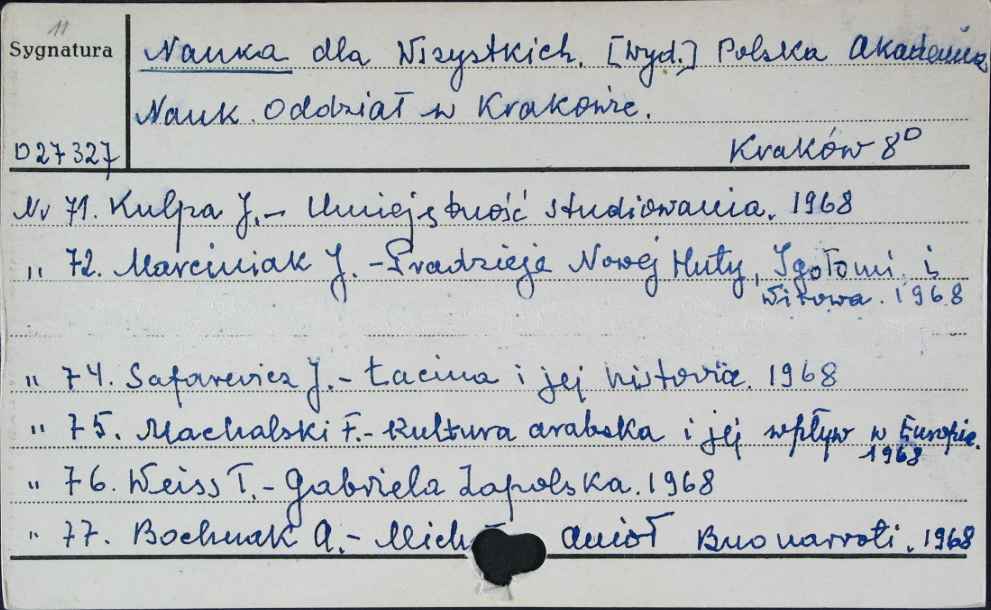 11
Sygnatura
Nauka dla Wszystkich. [Wyd.] Polska Akademia
Nauk. Oddział w Krakowie.
D27327
Kraków 8°
Nr 71. Kulpa J. - Umiejętność studiowania. 1968
,, 72. Marciniak J. - Pradzieje Nowej Huty, Igołomi i
Witowa. 1968
,, 74. Safarewicz J. - Łacina i jej historia. 1968
,, 75. Machalski F. - Kultura arabska i jej wpływ w Europie.
1968
,, 76. Weiss T. - Gabriela Zapolska. 1968
,, 77. Bochnak A. - Mich Anioł Buonarroti. 1968